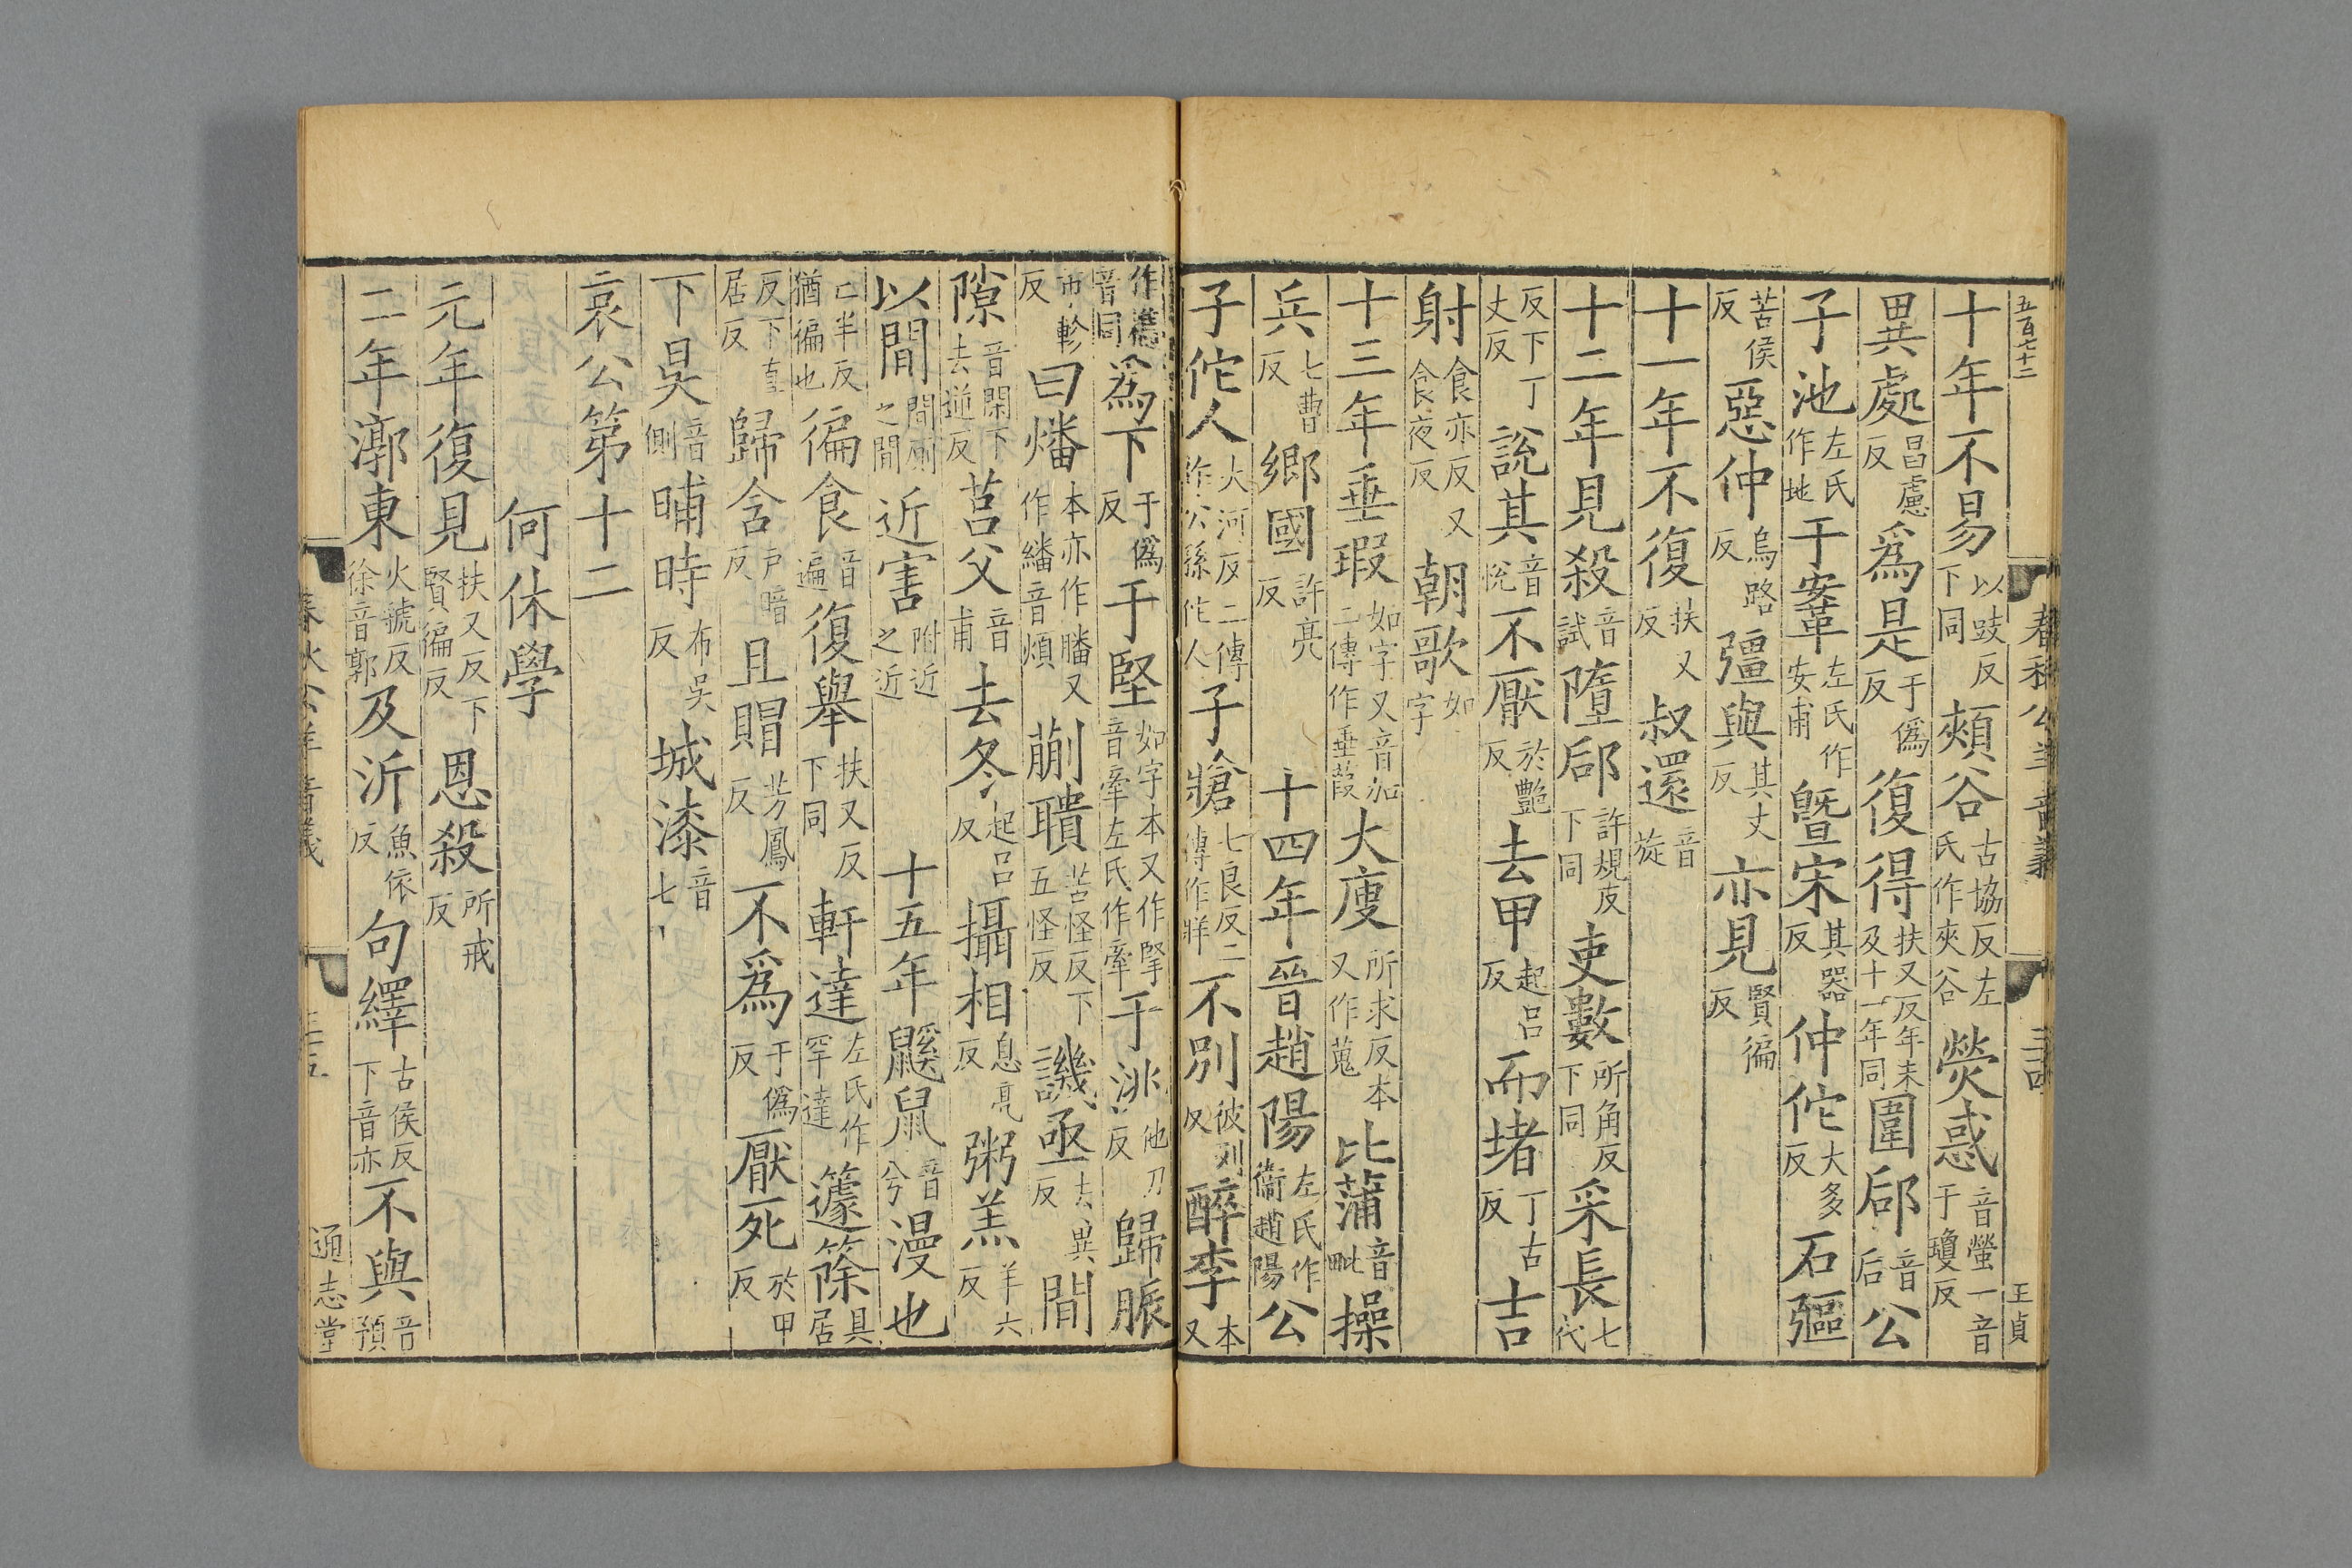 五百七十二
春秋公羊音義
三四
王貞
十年不易以豉反下同頰谷古協反左氏作夾谷熒惑音螢一音于瓊反
異處昌慮反爲是于僞反復得扶又反年末及十一年同圍郈音后公
子池左氏作地于鞌左氏作安甫曁宋其器反仲佗大多反石彄
苦侯反惡仲烏路反彊與其丈反亦見賢徧反
十一年不復扶又反叔還音旋
十二年見殺音試墮郈許規反下同吏數所角反下同采長七代
反下丁丈反說其音悅不厭於艷反去甲起呂反而堵丁古反士吉
射食亦反又食夜反朝歌如字
十三年垂瑕如字又音加二傳作垂葭大廋所求反本又作蒐比蒲音毗操
兵七曹反鄉國許亮反十四年晉趙陽左氏作衞趙陽公
子佗人大河反二傳作公孫佗人子牄七良反二傳作牂不別彼列反醉李本又
作檇音同爲下于僞反于堅如字本又作掔音牽左氏作牽于洮他刀反歸脤
市軫反曰燔本亦作膰又作繙音煩蒯聵苦怪反下五怪反譏亟去異反間
隙音閑下去逆反莒父音甫去冬起呂反攝相息亮反粥羔羊六反
以間間厠之間近害附近之近十五年鼷鼠音兮漫也
亡半反猶徧也徧食音遍復舉扶又反下同軒達左氏作罕達籧篨具居
反下直居反歸含戸暗反且賵芳鳳反不爲于僞反厭死於甲反
下昊音側晡時布吳反城漆音七
哀公第十二
何休學
元年復見扶又反下賢徧反恩殺所戒反
二年漷東火虢反徐音郭及沂魚依反句繹古侯反下音亦不與音預
春秋公羊音義
三五
通志堂